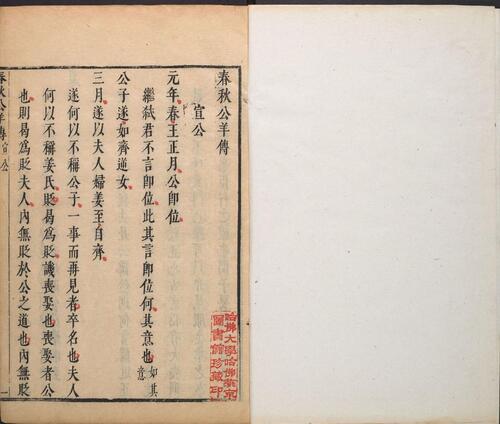 春秋公羊傳
宣公
元年春王正月公即位
繼弑君不言即位此其言即位何其意也如其
意
公子遂如齊逆女
三月遂以夫人婦姜至自齊
遂何以不稱公子一事而再見者卒名也夫人
何以不稱姜氏貶曷爲貶譏喪娶也喪娶者公
也則曷爲貶夫人內無貶於公之道也內無貶
春秋公羊傳 宣公 一
哈佛大學哈佛燕京
圖書館珍藏印